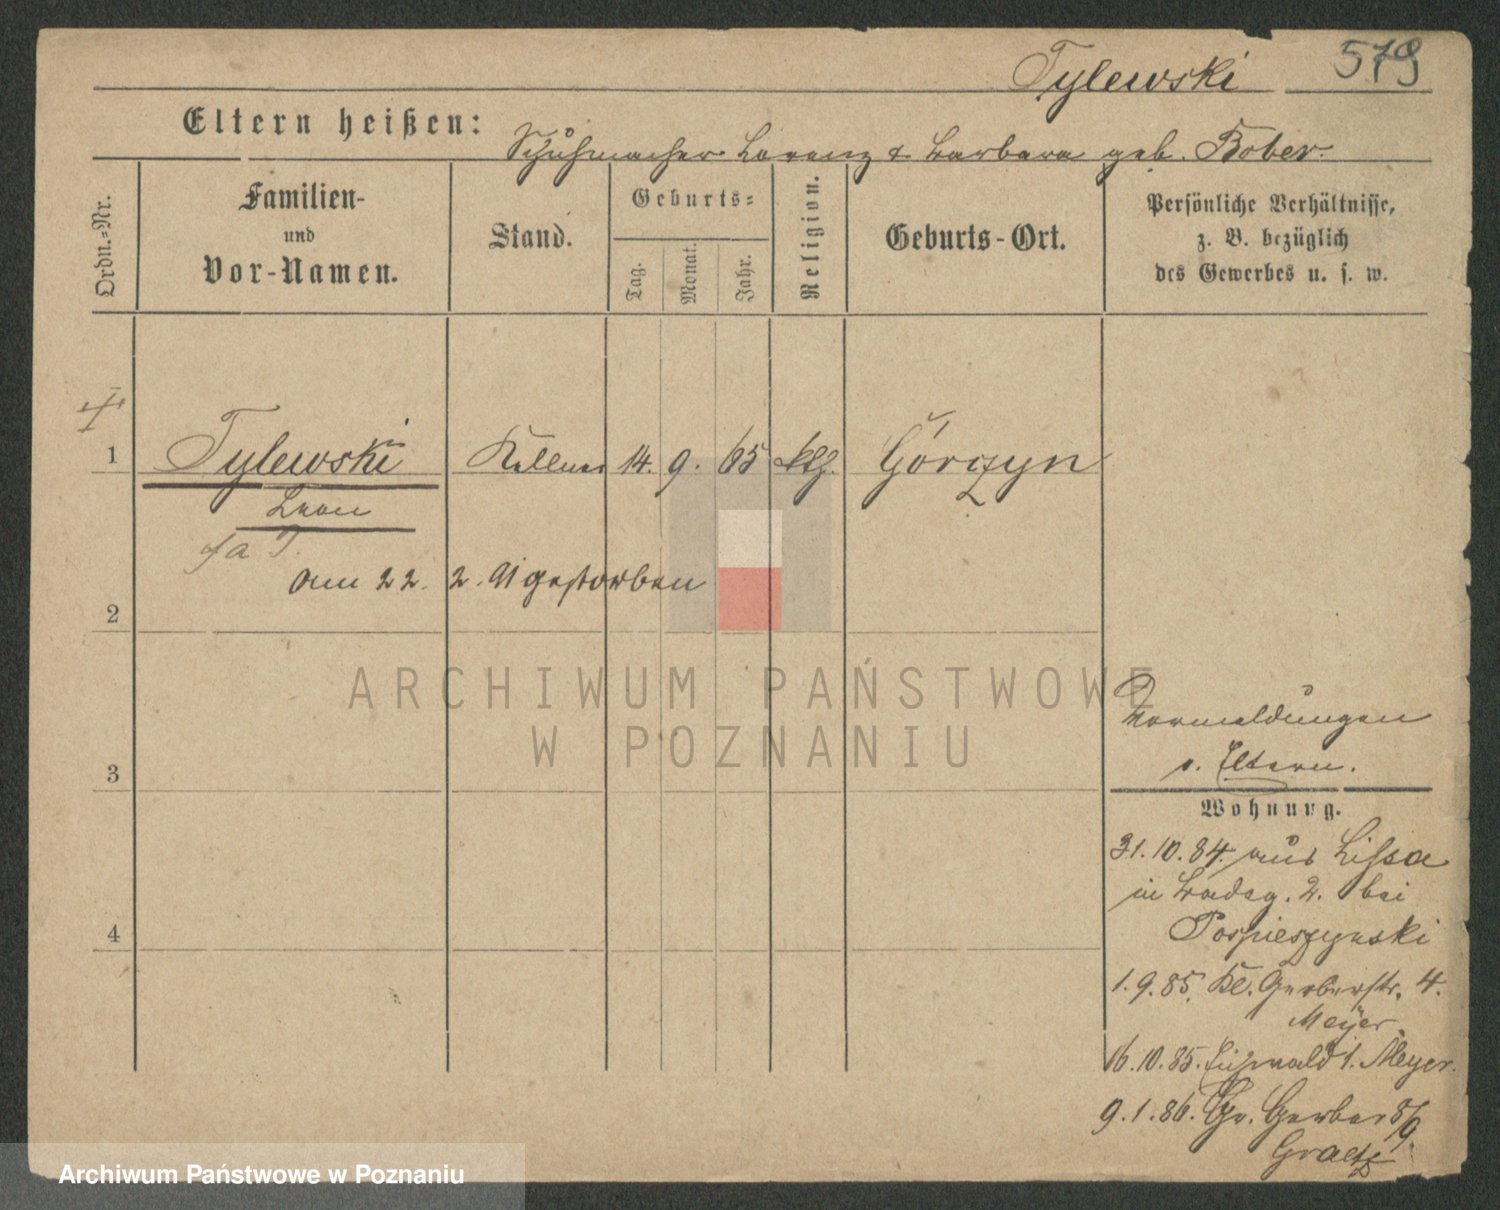 Tylewski 579
Eltern heißen: Schuhmacher Lorenz & Barbara geb. Bober.
Ordn.-Nr.
Familien-
und
Vor-Namen.
Stand.
Geburts-
Tag.
Monat.
Jahr.
Religion.
Geburts-Ort.
Persönliche Verhältnisse,
z. B. bezüglich
des Gewerbes u. s. w.
1 Tylewski Kellner 14. 9. 65 ktl. Górczyn
Leon
am 22. 2. 91 gestorben
2
3
4
Vormeldungen
s. Eltern.
Wohnung.
31.10.84. aus Lissa
in 2. bei
Pospieszynski
1.9.85. Kl. Gerberstr. 4.
Meyer.
16.10.85. Eichwald 1. Meyer.
9.1.86. Gr. Gerber 8/9
Graetz
ARCHIWUM PAŃSTWOWE
W POZNANIU
Archiwum Państwowe w Poznaniu